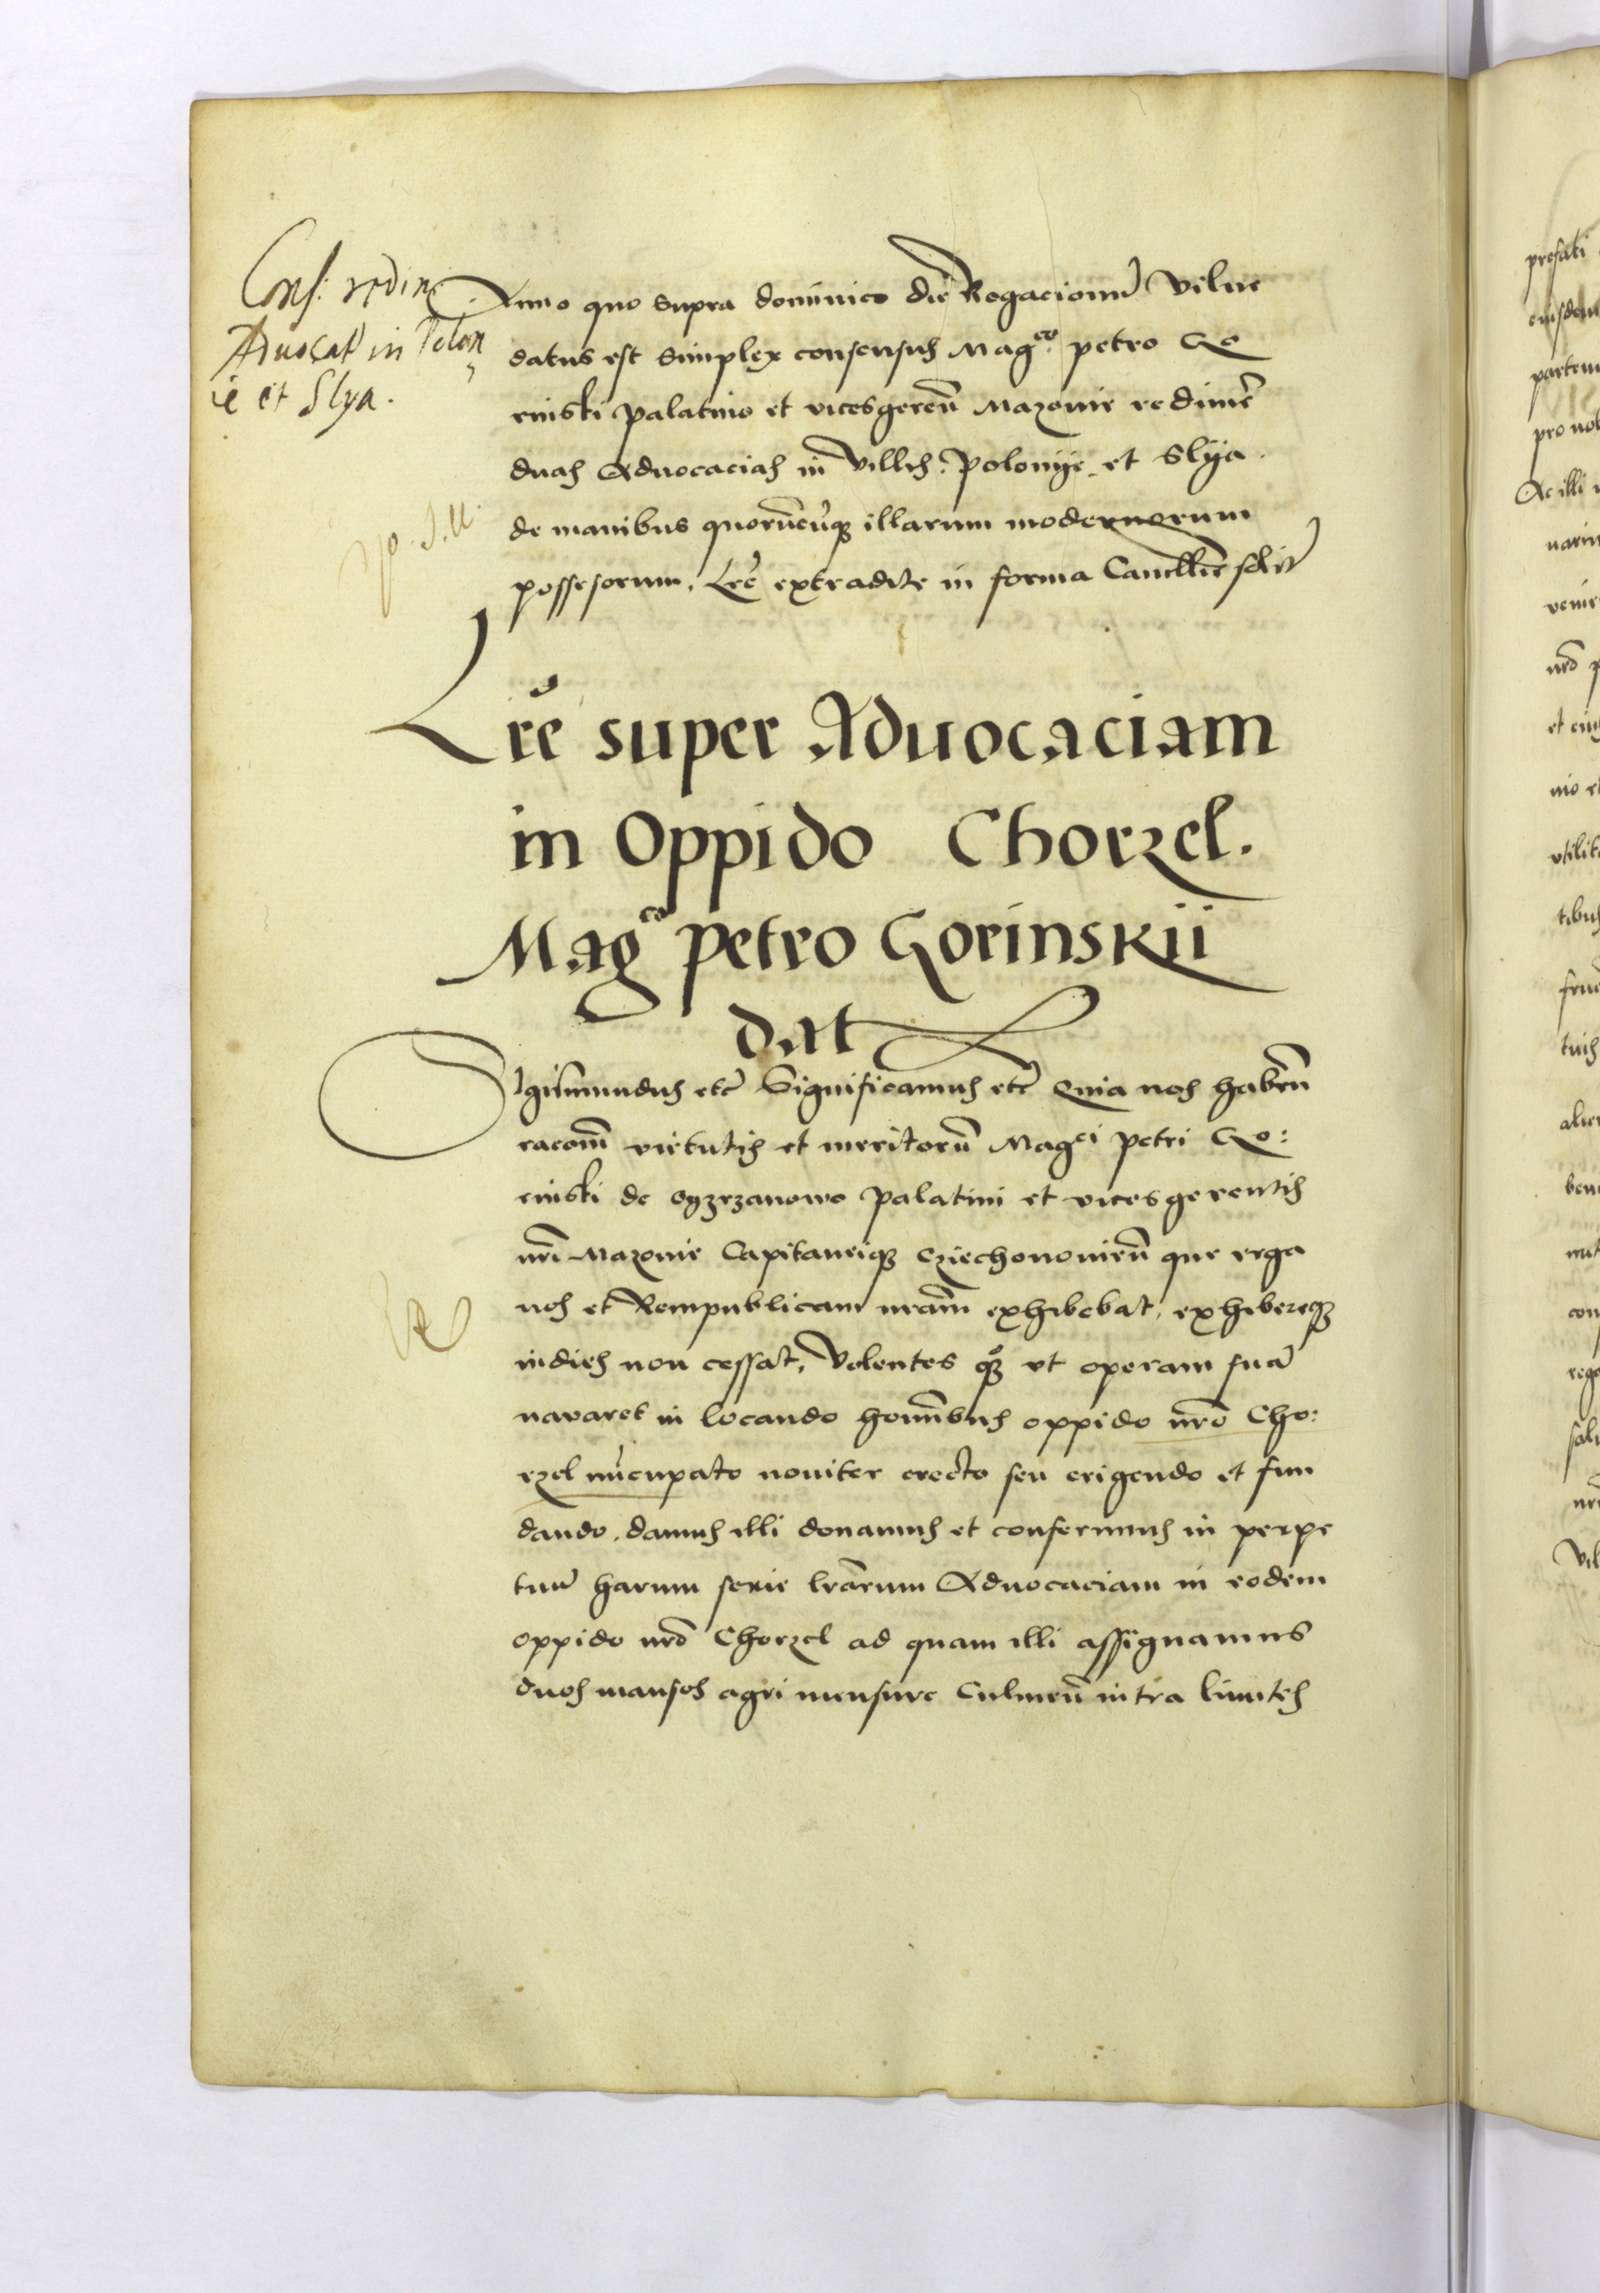 Cons: redim
Aduocat in Polon
ie et Slya.
Anno quo supra dominico die Rogacionũ Vilne
datus est simplex consensus Mag^co petro Go
rinski palatino et vicesgereñ Mazouie redimeͤ
duas Aduocacias in Villis. polonije et Slija.
de manibus quorũcũqʒ illarum modernorum
possessorum. Lrẽ extradite in forma Cancellarie solit
Lrẽ super Aduocaciam
in Oppido Chorzel.
Mag^co petro Gorinskii
dat
Sigismundus etc̃ Significamus etc̃ Quia nos habeñ
racoñ virtutis et meritorũ Mag^ci petri Go:
rinski de ogzrzanowo palatini et vicesgerentis
nr̃i Mazouie Capitaneiqʒ Cziechonouieñ que erga
nos et Rempublicam nrãm exhibebat, exhibereqʒ
indies non cessat, Volentes qʒ ut operam suã
nauaret in locando hominibus oppido nr̃o Cho:
rzel nũcupato nouiter erecto seu erigendo et fun
dando. damus illi donamus et conferimus in perpe
tuũ harum serie lrãrum Aduocaciam in eodem
oppido nr̃o Chorzel ad quam illi assignamus
duos mansos agri mensure Culmeñ intra limites
prefati
eiusdem
partem
pro nob
Ac illi